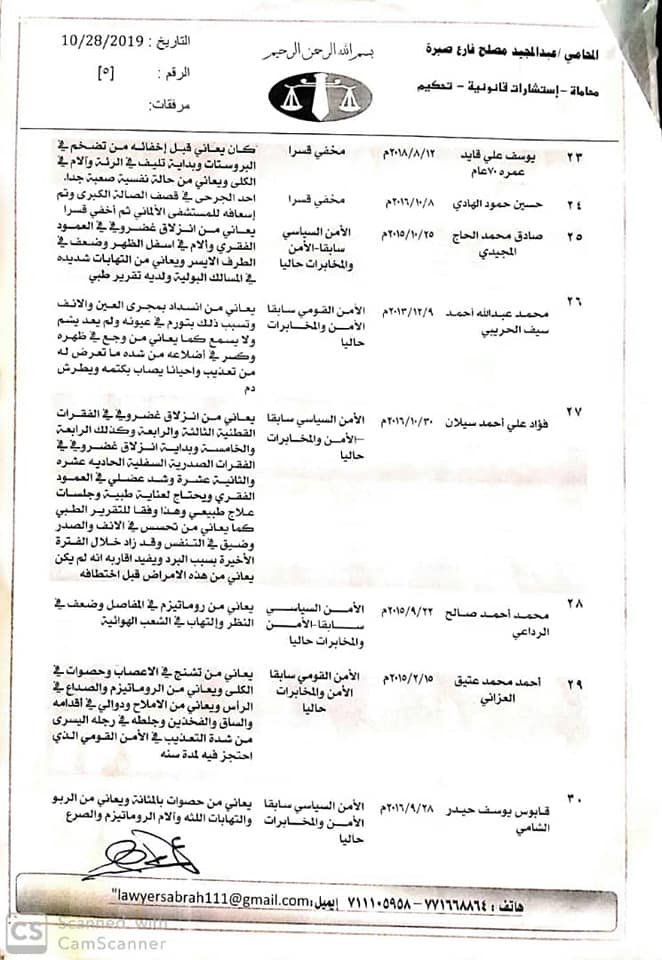 المحامي / عبدالمجيد مصلح فارع صبرة
محاماة - إستشارات قانونية - تحكيم
بسم الله الرحمن الرحيم
التاريخ : 10/28/2019
الرقم : [٥]
مرفقات:
٢٣ يوسف علي قايد ٢٠١٨/٨/١٢م مخفي قسرا كان يعاني قبل إخفائه من تضخم في
عمره ٧٠عام البروستات وبداية تليف في الرئة وآلام في
الكلى ويعاني من حالة نفسية صعبة جدا.
٢٤ حسين حمود الهادي ٢٠١٦/١٠/٨م مخفي قسرا احد الجرحى في قصف الصالة الكبرى وتم
إسعافه للمستشفى الألماني ثم أخفي قسرا
٢٥ صادق محمد الحاج ٢٠١٥/١٠/٢٥م الأمن السياسي يعاني من انزلاق غضروفي في العمود
المجيدي سابقا-الأمن الفقري وآلام في اسفل الظهر وضعف في
والمخابرات حاليا الطرف الايسر ويعاني من التهابات شديده
في المسالك البولية ولديه تقرير طبي
٢٦ محمد عبدالله أحمد ٢٠١٣/١٢/٩م الأمن القومي سابقا يعاني من انسداد بمجرى العين والانف
سيف الحريبي الأمن والمخابرات وتسبب ذلك بتورم في عيونه ولم يعد يشم
حاليا ولا يسمع كما يعاني من وجع في ظهره
وكسر في أضلاعه من شده ما تعرض له
من تعذيب واحيانا يصاب بكتمه ويطرش
دم
٢٧ فؤاد علي أحمد سيلان ٢٠١٦/١٠/٣٠م الأمن السياسي سابقا يعاني من انزلاق غضروفي في الفقرات
-الأمن والمخابرات القطنية الثالثة والرابعة وكذلك الرابعة
حاليا والخامسة وبداية انزلاق غضروفي في
الفقرات الصدرية السفلية الحاديه عشره
والثانية عشرة وشد عضلي في العمود
الفقري ويحتاج لعناية طبية وجلسات
علاج طبيعي وهذا وفقا للتقرير الطبي
كما يعاني من تحسس في الانف والصدر
وضيق في التنفس وقد زاد خلال الفترة
الأخيرة بسبب البرد ويفيد اقاربه انه لم يكن
يعاني من هذه الامراض قبل اختطافه
٢٨ محمد أحمد صالح ٢٠١٥/٩/٢٢م الأمن السياسي يعاني من روماتيزم في المفاصل وضعف في
الرداعي سابقا-الأمن النظر وإلتهاب في الشعب الهوائية
والمخابرات حاليا
٢٩ أحمد محمد عتيق ٢٠١٥/٢/١٥م الأمن القومي سابقا يعاني من تشنج في الاعصاب وحصوات في
العزاني الأمن والمخابرات الكلى ويعاني من الروماتيزم والصداع في
حاليا الرأس ويعاني من الاملاح ودوالي في أقدامه
والساق والفخذين وجلطه في رجله اليسرى
من شدة التعذيب في الأمن القومي الذي
احتجز فيه لمدة سنه
٣٠ قابوس يوسف حيدر ٢٠١٦/٩/٢٨م الأمن السياسي سابقا يعاني من حصوات بالمثانة ويعاني من الربو
الشامي الأمن والمخابرات والتهابات اللثه وآلام الروماتيزم والصرع
حاليا
هاتف : ٧٧١٦٦٨٨٦٤ - ٧١١١٠٥٩٥٨ إيميل:lawyersabrah111@gmail.com"
CS Scanned with
CamScanner